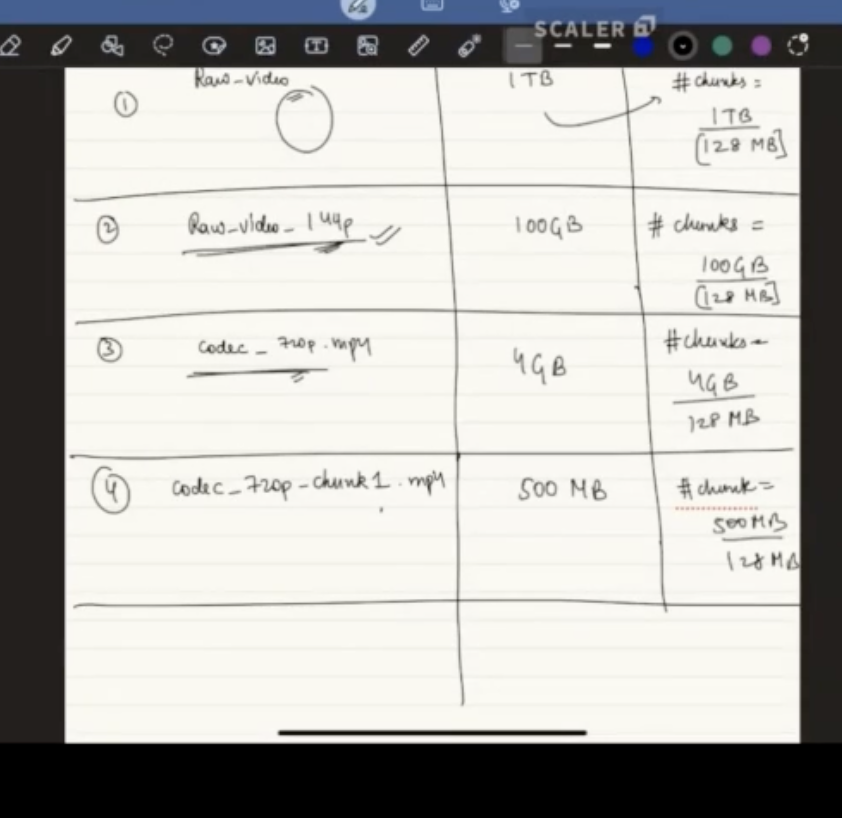 SCALER
① Raw-video 1TB #chunks =
1TB
[128 MB]
② Raw-video-144p 100GB # chunks =
100GB
[128 MB]
③ codec-720p.mp4 4GB #chunks=
4GB
128 MB
④ codec-720p-chunk1.mp4 500 MB #chunk=
500MB
128 MB